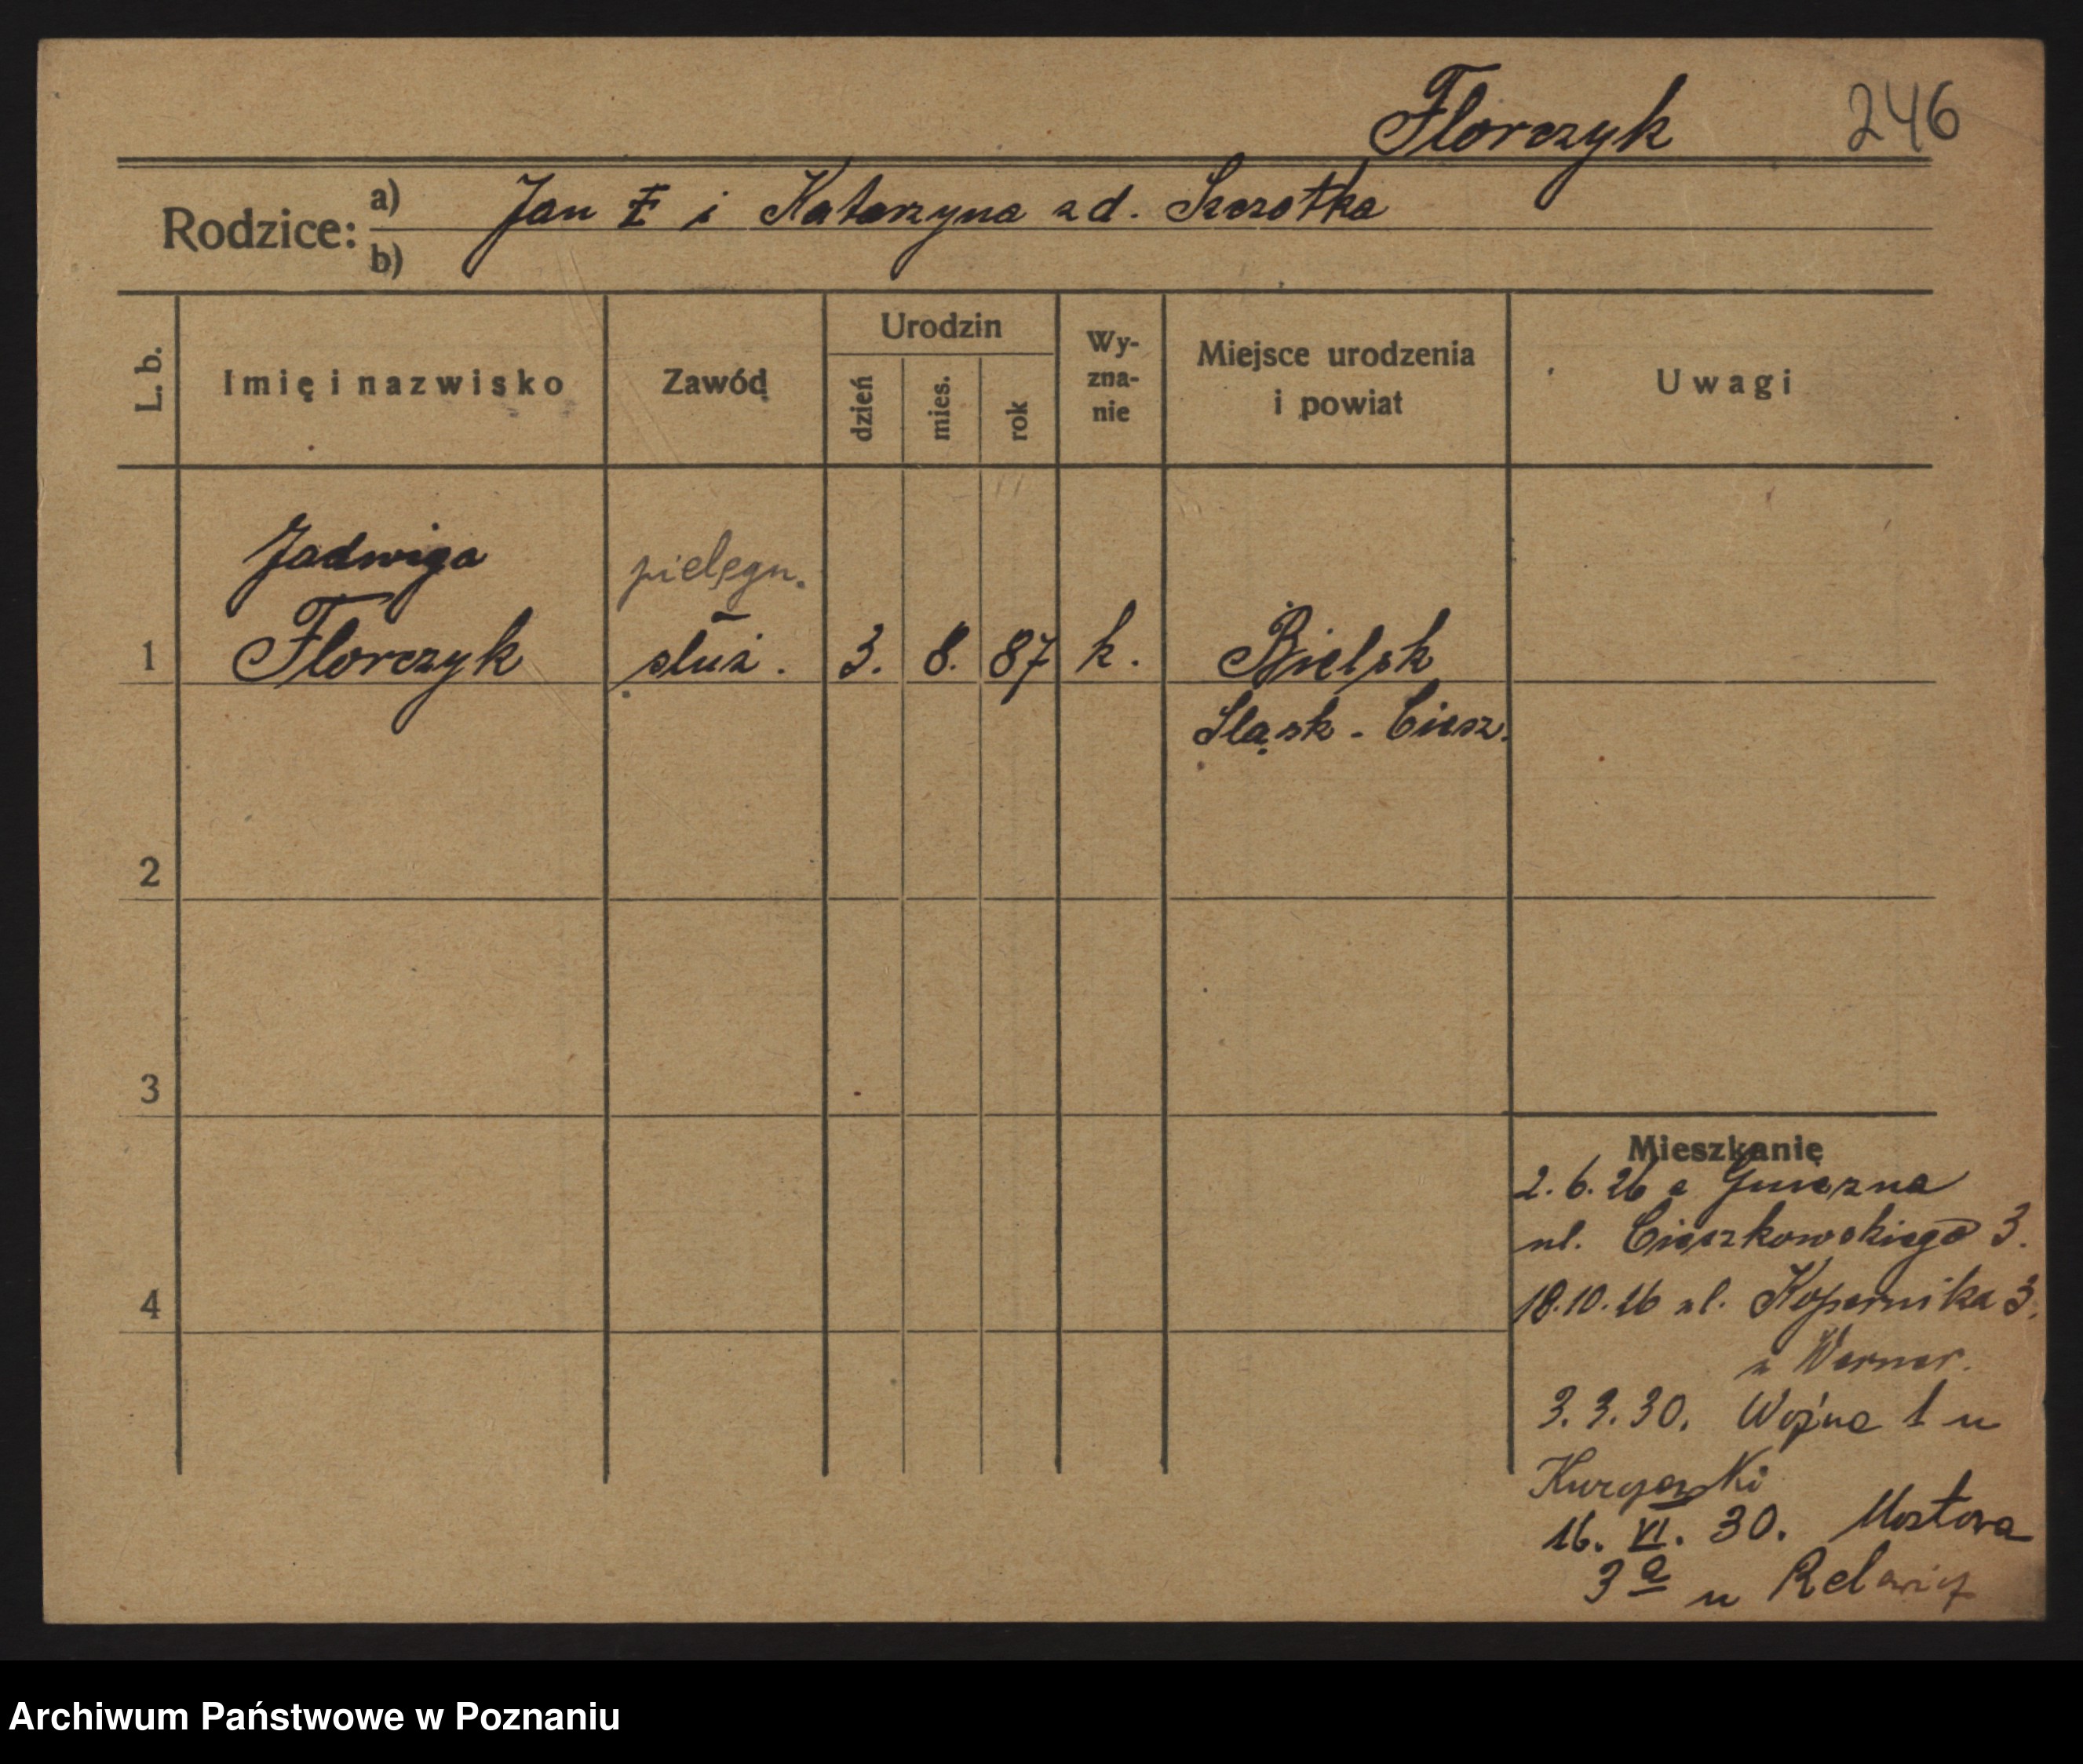 Florczyk 246
Rodzice: a) Jan F i Katarzyna zd. Szczotka
b)
L. b. Imię i nazwisko Zawód Urodzin dzień mies. rok Wy-zna-nie Miejsce urodzenia i powiat Uwagi
Jadwiga pielęgn.
1 Florczyk służ. 3. 8. 87 k. Bielsk
Śląsk - Ciesz.
2
3
Mieszkanie
2.6.26 z Gniezna
ul. Cieszkowskiego 3.
18.10.26 ul. Kopernika 3.
4
u Werner.
3.3.30. Woźna 1 u
16. VI. 30. Mostowa
3a u
Archiwum Państwowe w Poznaniu